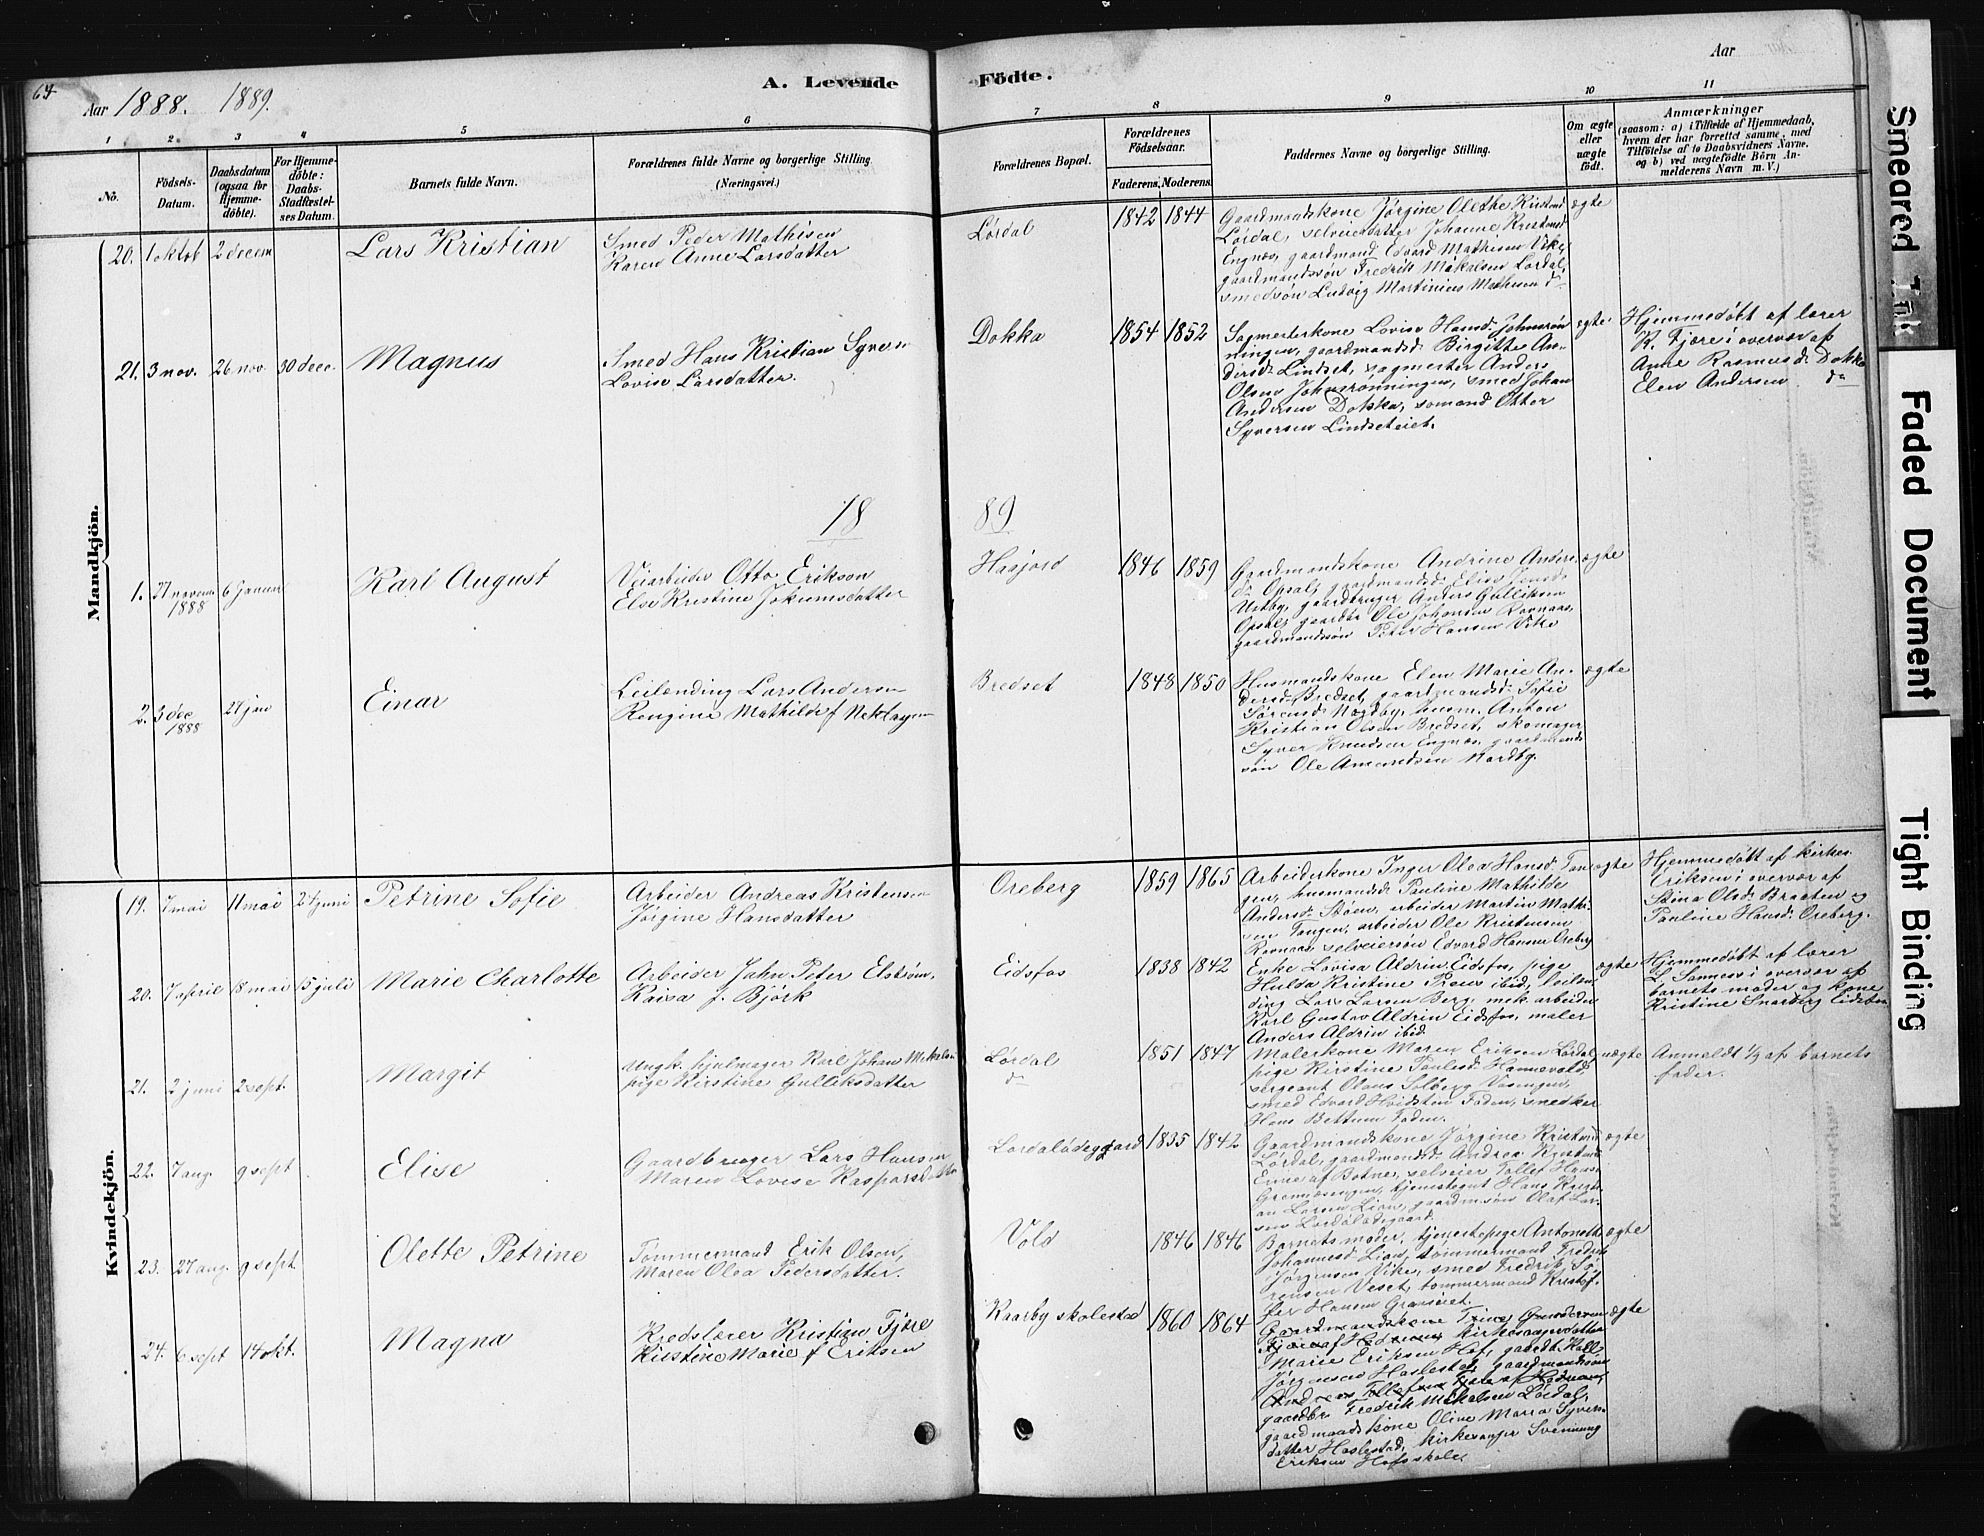 64
Aar 1888. 1889.
A. Levende Födte.
Aar
1 2 3 4 5 6 7 8 9 10 11
No.
Födsels-
Datum.
Daabsdatum
(ogsaa for
Hjemme-
döbte).
For Hjemme-
döbte:
Daabs-
Stadfæstel-
ses Datum.
Barnets fulde Navn.
Forældrenes fulde Navne og borgerlige Stilling
(Næringsvei.)
Forældrenes Bopæl.
Forældrenes
Födselsaar.
Faderens. Moderens.
Faddernes Navne og borgerlige Stilling.
Om ægte
eller
uægte
födt.
Anmærkninger
(saasom: a) i Tilfælde af Hjemmedaab,
hvem der har forrettet samme, med
Tilföielse af to Daabsvidners Navne.
og b) ved uægtefödte Börn An-
melderens Navn m. V.)
Mandkjön.
20. 1 oktob 2 decem Lars Kristian
Smed Peder Mathisen
Karen Anne Larsdatter
Lørdal 1842 1844
Gaardmandskone Jørgine Olethe Kristend
Lørdal, selveierdatter Johanne Kristensd
Engnæs, gaardmand Edvard Mathisen Vike,
gaardmandssøn Fredrik Mikalsen Lørdal,
smedsøn Ludvig Martinius Mathisen d°
ægte
21. 3 nov. 26 nov. 30 dece. Magnus
Smed Hans Kristian Syvers
Lovise Larsdatter.
Dokka 1854 1852
Sagmesterkone Lovise Hansd. Johnsrøn
ningen, gaardmandsd. Birgitte An-
dersd. Lindset, sagmester Anders
Olsen Johnsrønningen, smed Johan
Andersen Dokka, sømand Otter
Syversen Lindseteiet.
ægte
Hjemmedøbt af lærer
K. Fjære i overvær af
Anne Rasmusd. Dokka
Elen Andersen d°
18 89
1. 27 novem 1888 6 januar Karl August
Veiarbeider Otto Erikson
Else Kristine Jokumsdatter
Haajord 1846 1859
Gaardmandskone Andrine Anders
d. Opsal, gaardmandsd. Elise Jensd.
Ustby, gaardbruger Anders Gulliksen
Opsal, gaardbr Ole Johansen Ravnaas,
gaardmandssøn Peter Hansen Vike
ægte
2. 3 dec 1888 27 jan Einar
Leilending Lars Anders
Rengine Mathilde f
Bredset 1848 1850
Husmandskone Elen Marie An-
dersd. Bredset, gaardmandsd. Sofie
Sørensd. Nordby, husm. Anton
Kristian Olsen Bredset, skomager
Syver Knudsen Engnæs, gaardmands
søn Ole Amundsen Nordby.
ægte
Kvindekjön.
19. 7 mai 11 mai 24 juni Petrine Sofie
Arbeider Andreas Kristensen
Jørgine Hansdatter
Oreberg 1859 1865
Arbeiderkone Inger Olea Hansd. Tan
gen, husmandsd. Pauline Mathilde
Andersd. Støen, arbeider Martin Mathi
sen Tangen, arbeider Ole Kristensen
Ravnaas, selveiersøn Edvard Hansen Oreberg
ægte
Hjemmedøbt af kirkes.
Eriksen i overvær af
Stina Olsd. Braaten og
Pauline Hansd. Oreberg.
20. 7 april 18 mai 15 juli Marie Charlotte
Arbeider John Peter Elstrøm,
Kaisa f. Bjørk
Eidsfos 1838 1842
Enke Lovisa Aldrin Eidsfos, pige
Hulda Kristine ibid, leilen
ding Lars Larsen Berg, mek. arbeider
Karl Gustav Aldrin Eidsfos, maler
Anders Aldrin ibid.
ægte
Hjemmedøbt af lærer
L Sannes i overvær af
barnets moder og kone
Kristine Snarberg Eidsfos
21. 2 juni 2 sept. Margit
Ungk. hjulmager Karl Johan Mikalsen
pige Kirstine Gulliksdatter
Lørdal
d°
1851 1847
Malerkone Maren Eriksen Lørdal
pige Kirstine Paulsd. Hannevold,
sergeant Olaus Solberg
smed Edvard Hvidsten Foden, snedker
Hans Bettum Foden.
uægte
Anmeldt 1/9 af barnets
fader.
22. 7 aug. 9 sept Elise
Gaardbruger Lars Hansen
Maren Lovise Kaspersdatter
Lørdalødegaard 1835 1842
Gaardmandskone Jørgine Kristensd
Lørdal, gaardmandsd. Andrea Kristens
Enne af Botne, selveier Tollef Hans
tjenestegut Hans Krist
an Larsen Lian, gaardmsøn Olaf Lar-
sen Lørdalødegaard.
ægte
23. 27 aug. 9 sept Olette Petrine
Tømmermand Erik Olsen,
Maren Olea Pedersdatter.
Vold 1846 1846
Barnets moder, tjenestepige Antonette
Johannesd. Lian, tømmermand Fredrik
Jørgensen Vike, smed Fredrik Sø-
rensen Veset, tømmermand Kristof-
fer Hansen
ægte
24. 6 sept 14 okt. Magna
Kredslærer Kristian Fjære
Kirstine Marie f Eriksen
Kaarby skolested 1860 1864
Gaardmandskone Trine Gundersen
Fjære af Hedrum, kirkesangerdatter
Marie Eriksen Hof, gaardbr. Karl
Jørgensen Haslestad, gaardmandssøn
Anders Tollefsen Fjære af Hedrum,
gaardbr. Fredrik Mikalsen Lørdal,
gaardmandskone Oline Maria Syvers
datter Haslestad, kirkesanger Svenning
Eriksen Hofs skole.
ægte
Smeared Ink
Faded Document
Tight Binding